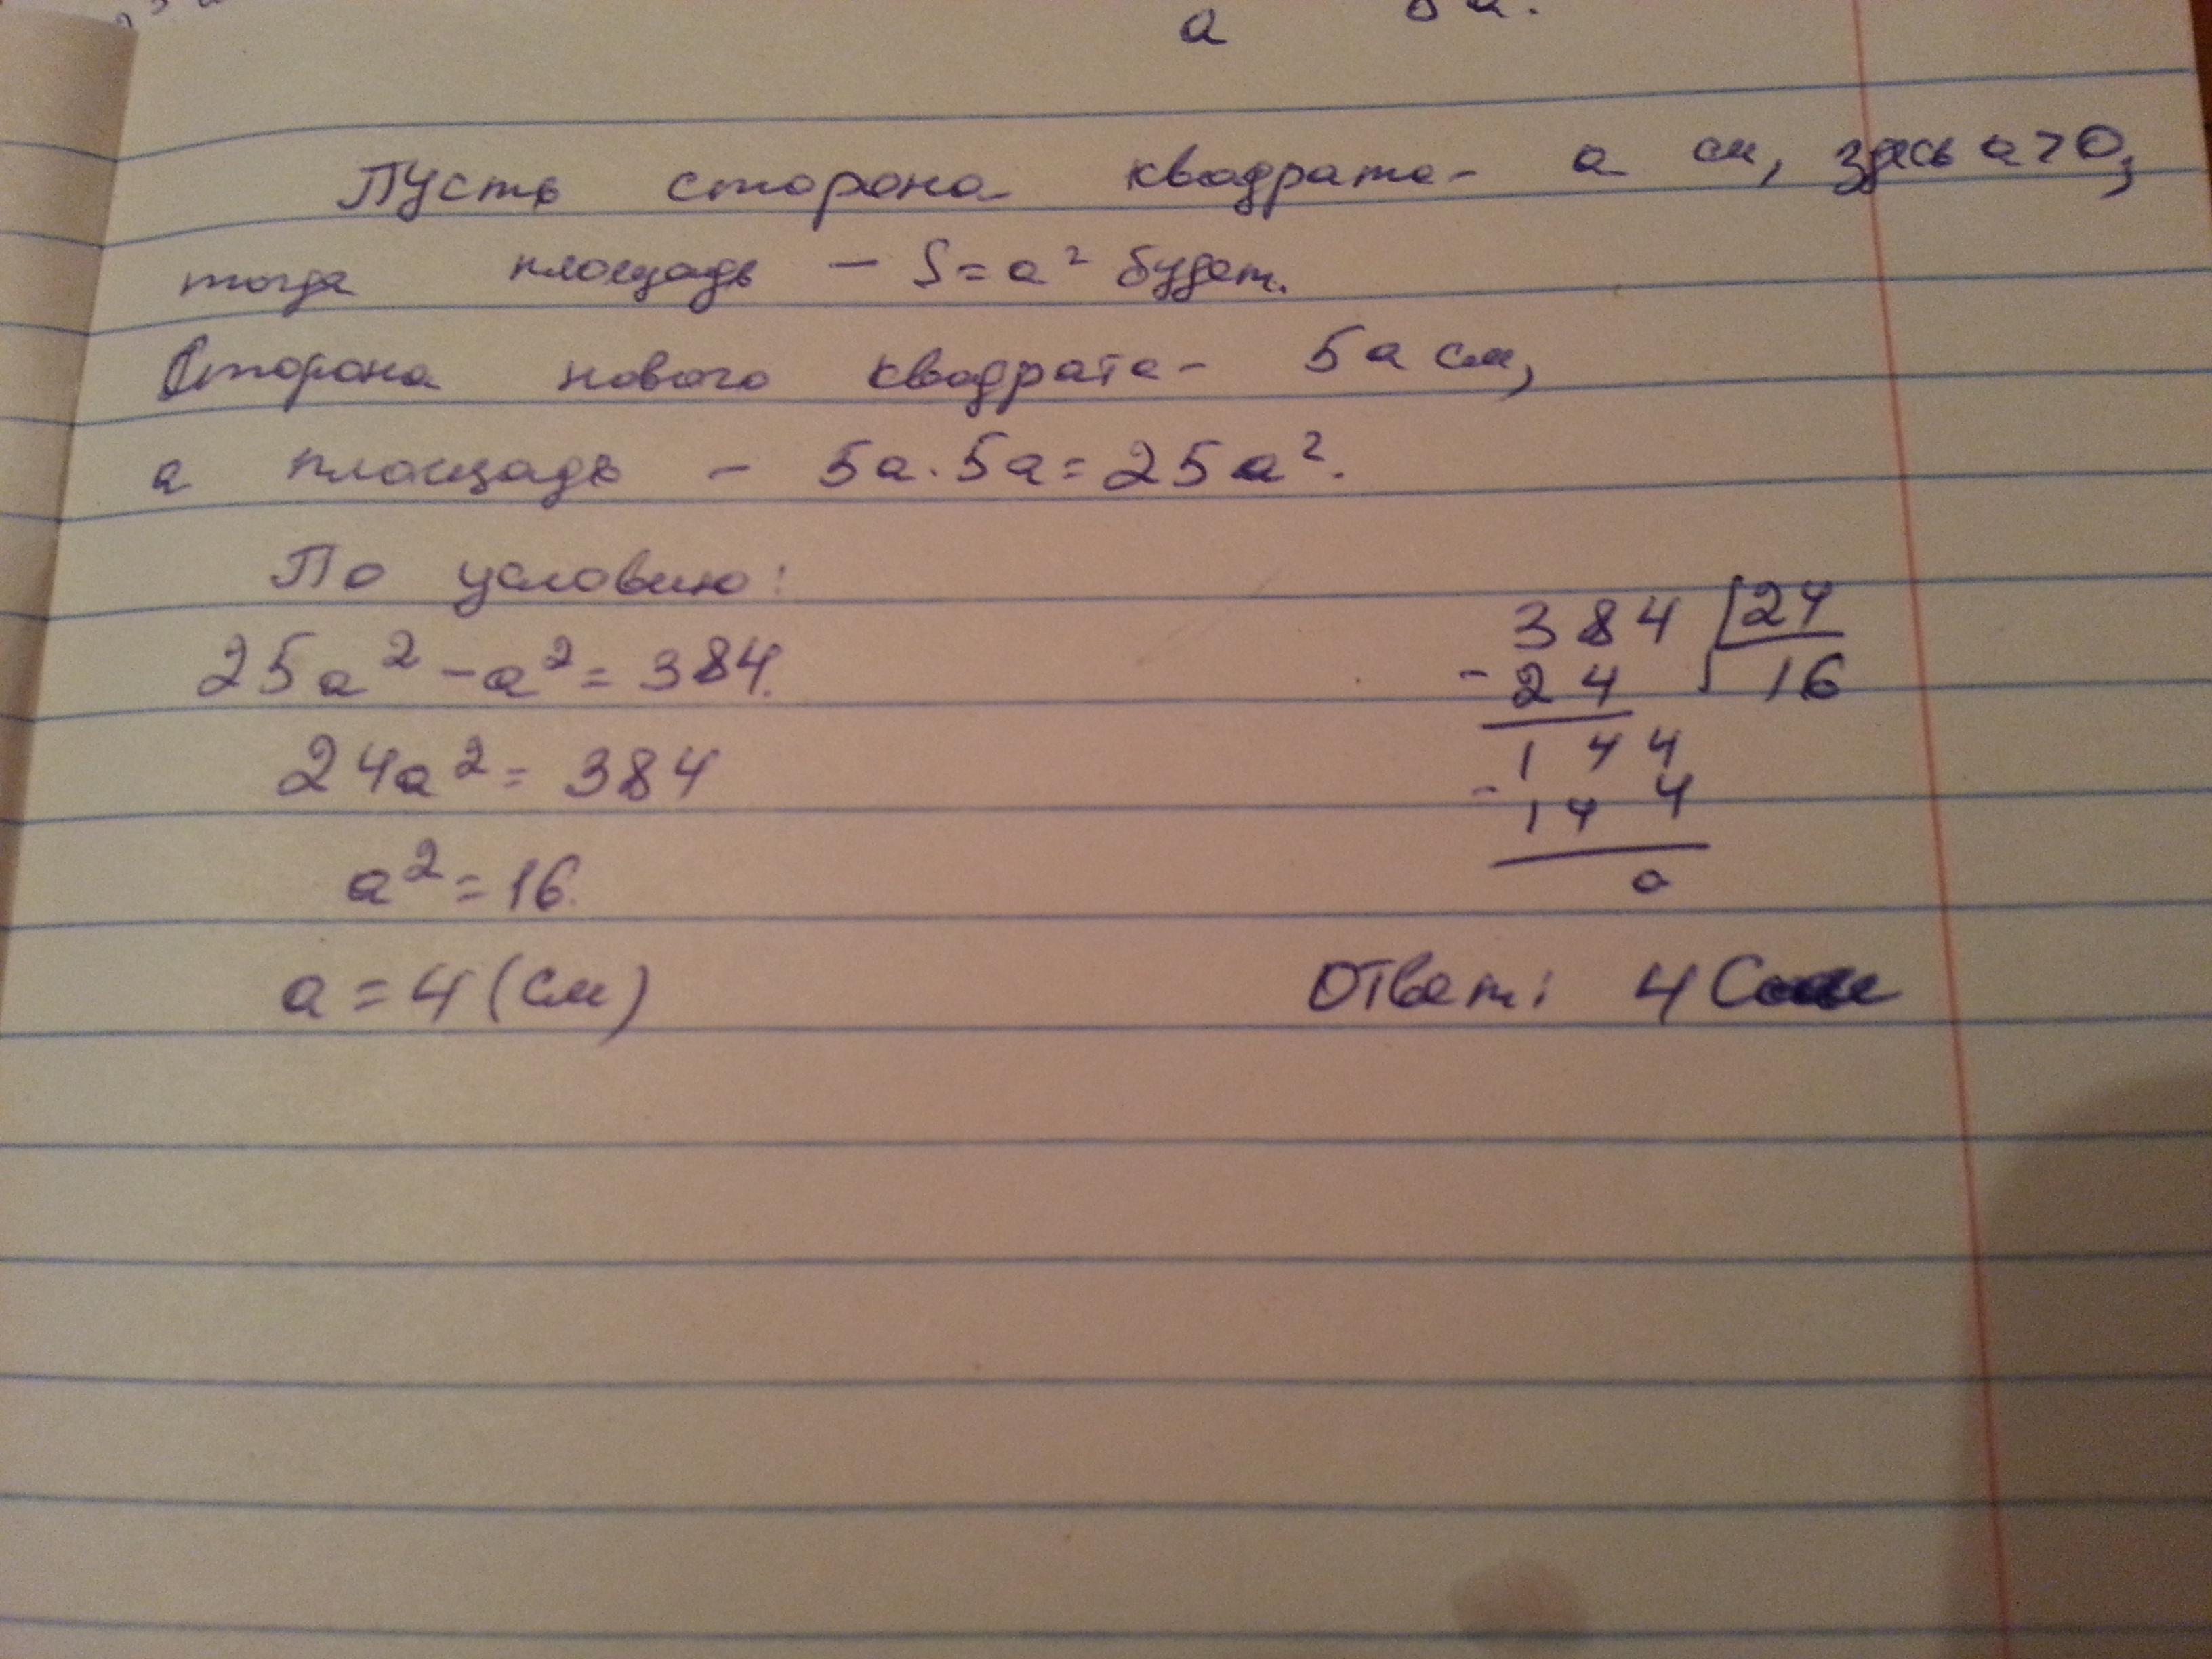 a 5a.
Пусть сторона квадрата - a см, здесь a > 0,
тогда площадь - S = a² будет.
Сторона нового квадрата - 5a см,
а площадь - 5a · 5a = 25a².
По условию:
25a² - a² = 384.
24a² = 384
a² = 16.
a = 4 (см)
384 | 24
- 24 16
144
- 144
0
Ответ: 4 см